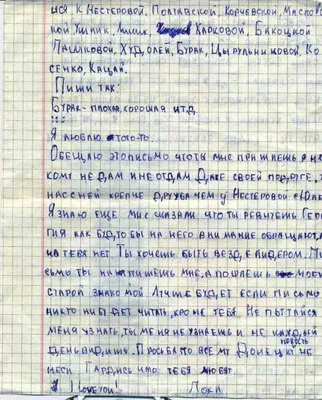 ися к Нестеровой, Полтавской, Корчевской, Масло
кой Ушник, Харковой, Бакоцкой
Пашиковой, Худолей, Бурак, Цырульниковой, Ко
сенко, Кацай.
Пиши так:
Бурак-плохая, хорошая итд
Я люблю этого-то.
Обещаю это письмо что ты мне пришлешь я н
кому не дам и не отдам даже своей подруге, х
нас с ней крепче дружба чем у Нестеровой и
Я знаю еще мне сказали что ты ревнуешь Геор
гия как будто бы на него внимание обращают, а
на тебя нет. Ты хочешь быть везде лидером. Пи
сьмо ты напишешь мне, а пошлешь моей
старой знакомой Лучше будет если письмо
никто не будет читать, кроме тебя. Не пытайся
меня узнать, ты меня не узнаешь и не каждый
новость
день вадишь. Просьба то все му Донецку не
неси Гардись что тебя любят.
I love you! Лока